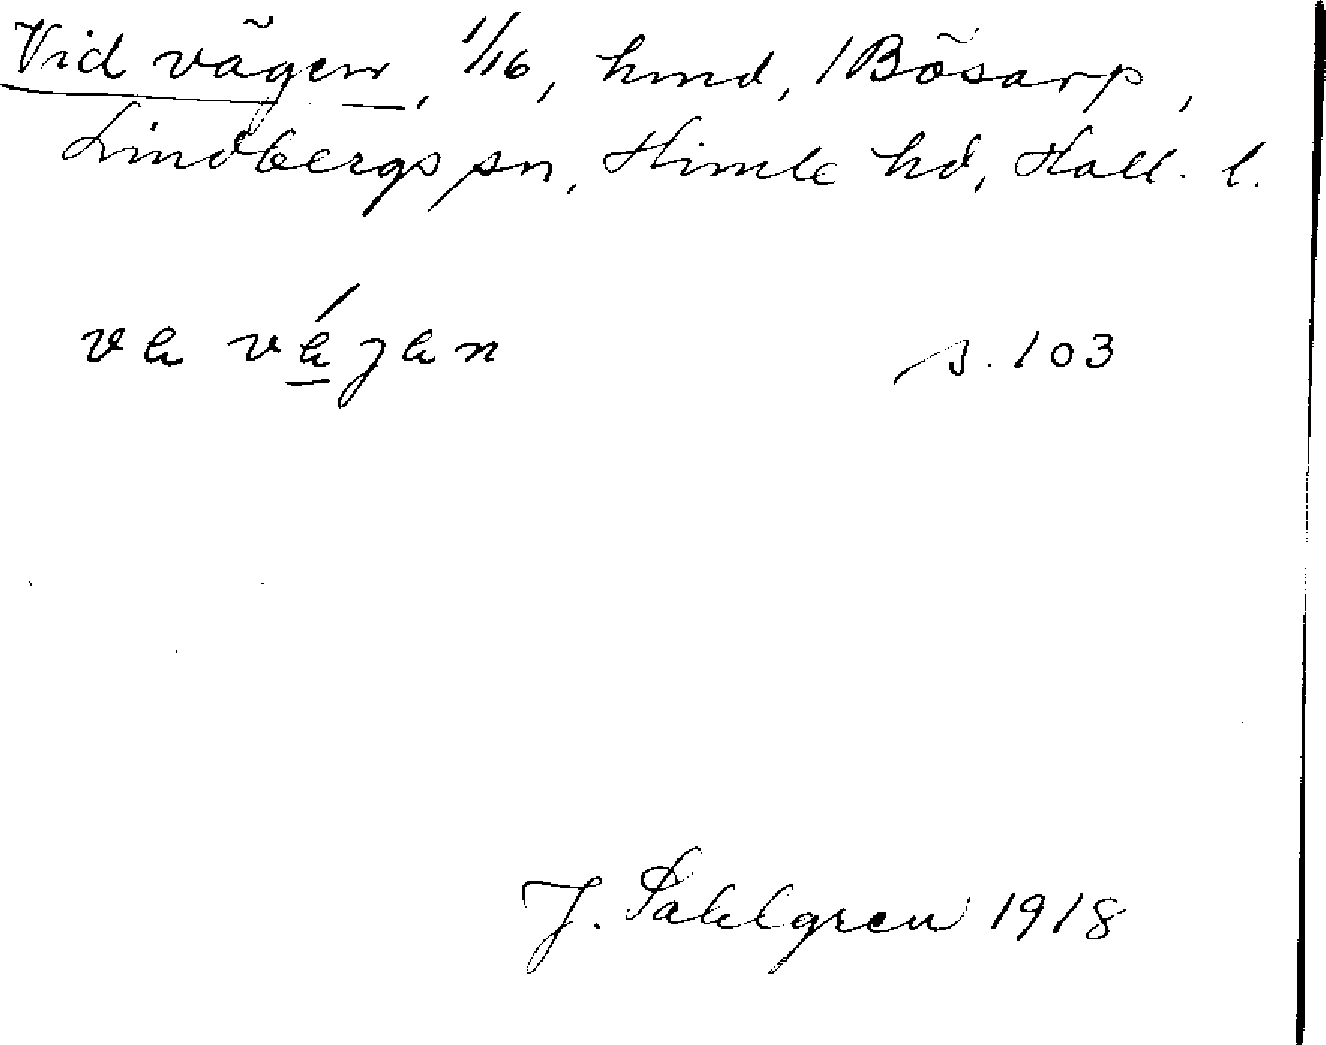 Vid vägen, 1/16, hmd, /Bösarp,
Lindbergs sn, Himle hd, Hall. l.
s. 103
J. Sahlgren 1918